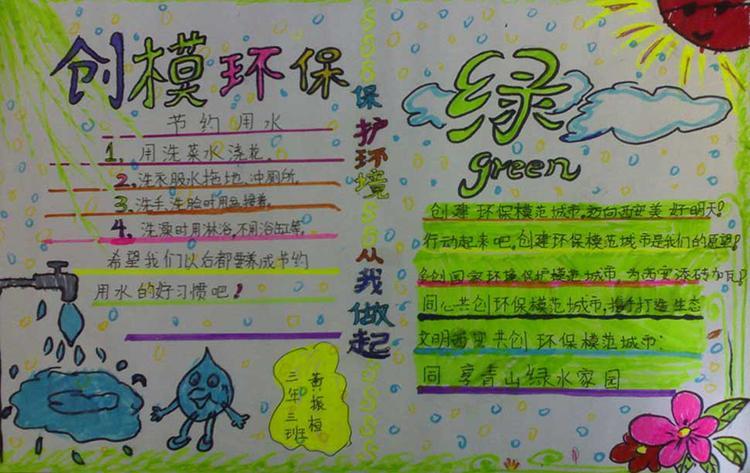 创模环保
节约用水
1、用洗菜水浇花.
2.洗衣服水拖地,冲厕所.
3.洗手、洗脸时用盆接着.
4、洗澡时用淋浴,不用浴缸等.
希望我们以后都要养成节约
用水的好习惯吧!
三年三班
黄振桓
保护环境从我做起
绿
green
创建环保模范城市,迈向西安美好明天!
行动起来吧,创建环保模范城市是我们的愿望!
争创国家环境保护模范城市,为西安添砖加瓦!
同心共创环保模范城市,携手打造生态
文明西安共创环保模范城市:
同享青山绿水家园